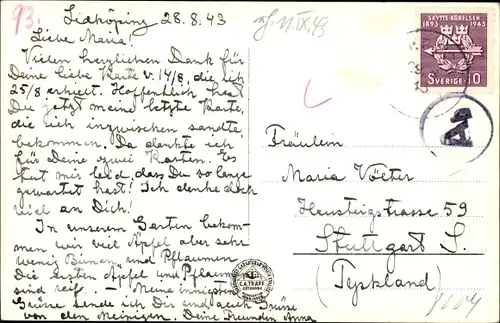 93.
Lidköping 28.8.43
Liebe Maria!
Vielen herzlichen Dank für
Deine liebe Karte v. 14/8, die ich
25/8 erhielt. Hoffentlich hast
Du jetzt meine letzte Karte,
die ich inzwischen sandte,
bekommen. Da dankte ich
für Deine zwei Karten. Es
tut mir leid dass Du so lange
gewartet hast! Ich denke doch
viel an Dich!
In unserem Garten bekom-
men wir viel Äpfel aber sehr
wenig Birnen und Pflaumen.
Die ersten Äpfel und Pflaumen
sind reif. — Meine innigsten
Grüsse sende ich Dir und auch Grüsse
von den Meinigen. Deine Freundin Anna
11.IX.43
SKYTTERÖRELSEN
1893 1943
SVERIGE 10
A
Fräulein
Maria Völter
Heusteigstrasse 59
Stuttgart S.
(Tyskland)
C.A. TRÄFF
GÖTEBORG